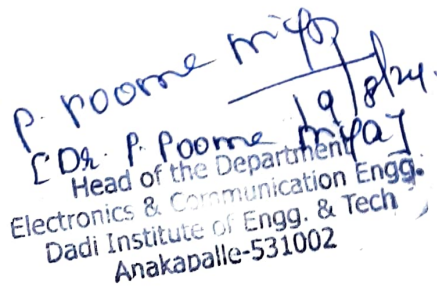 P. Poorna Priya
19/8/24.
[Dr. P. Poorna Priya]
Head of the Department
Electronics & Communication Engg.
Dadi Institute of Engg. & Tech
Anakapalle-531002